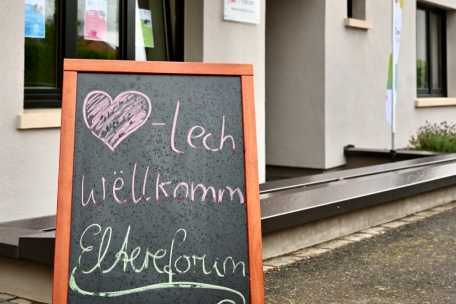 ♥-lech
wëllkomm
Eltereforum